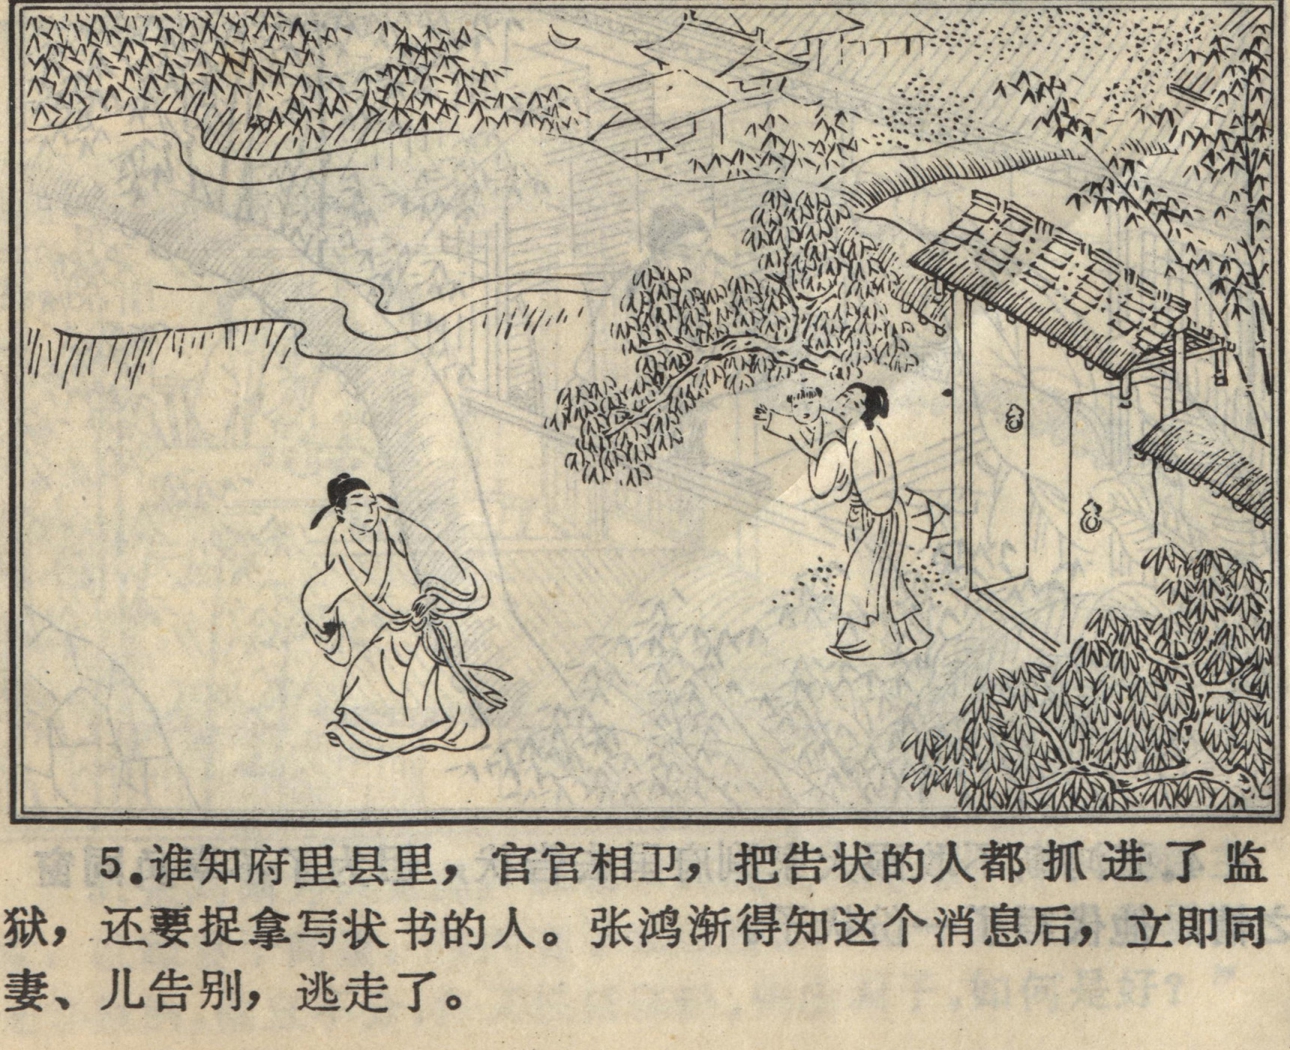 5.谁知府里县里，官官相卫，把告状的人都抓进了监
狱，还要捉拿写状书的人。张鸿渐得知这个消息后，立即同
妻、儿告别，逃走了。